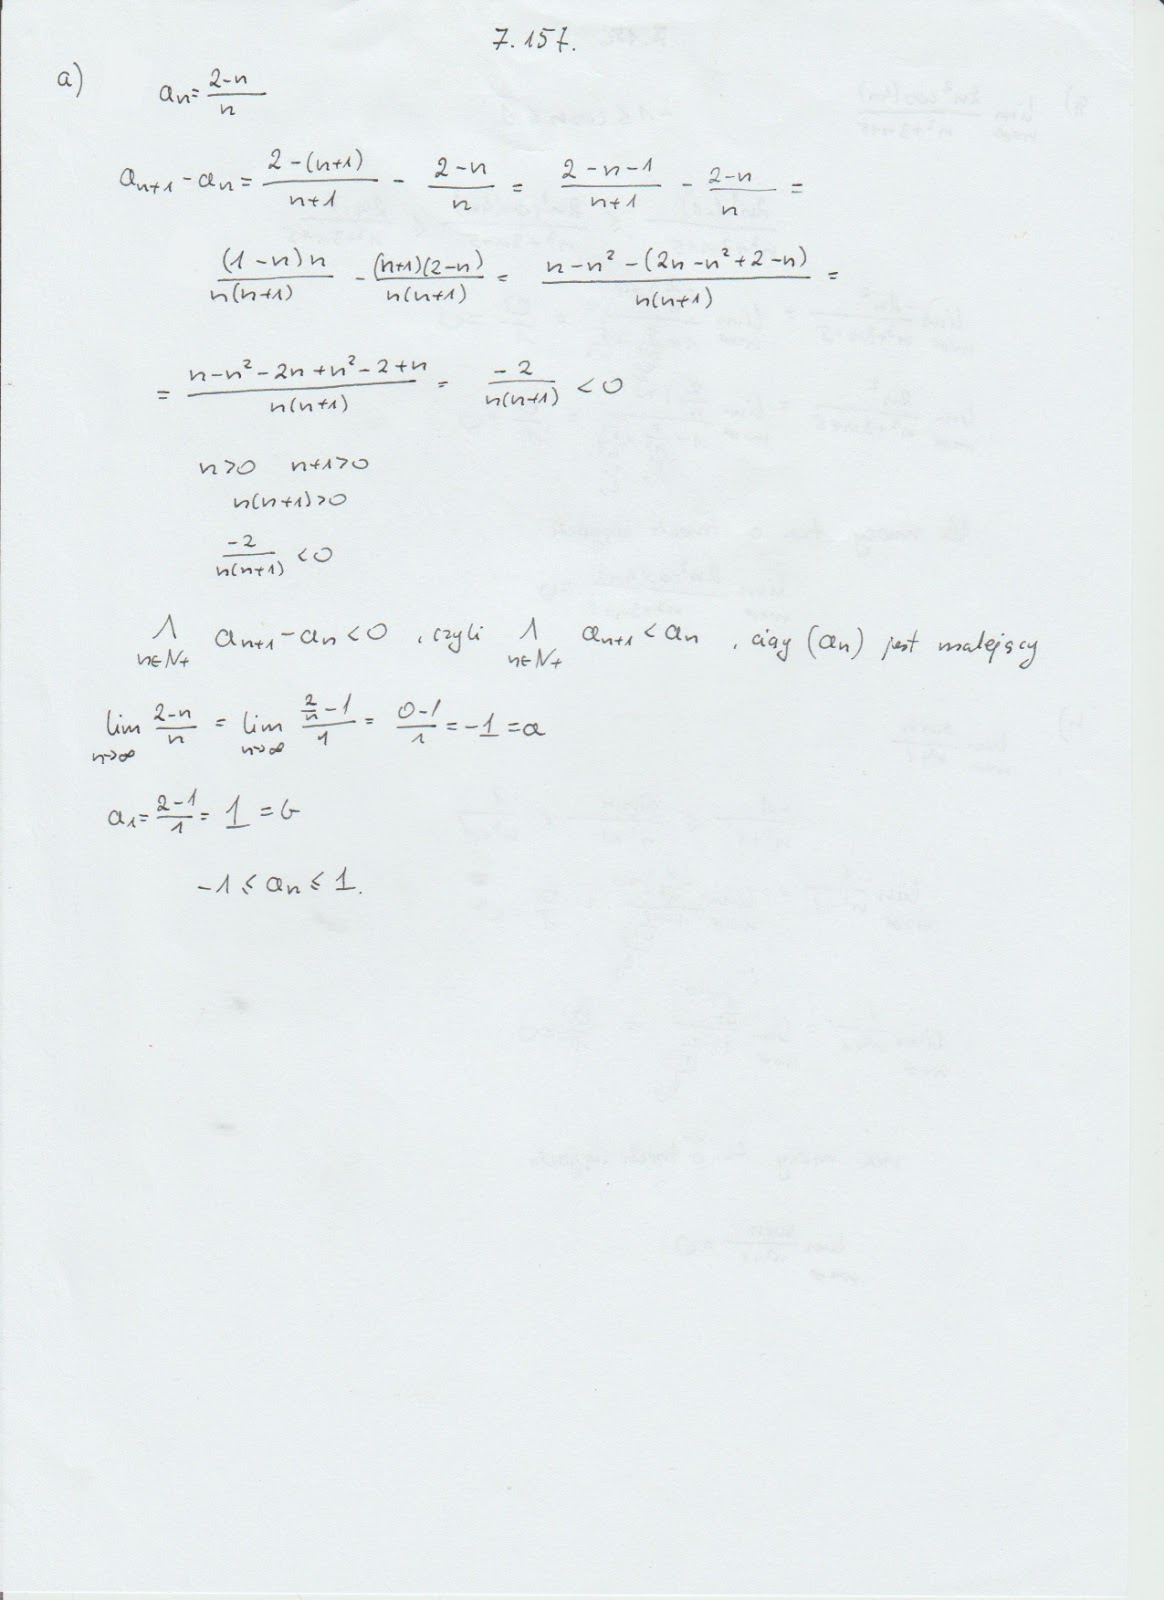 7.157.
a) an = (2-n)/n
an+1 - an = (2-(n+1))/(n+1) - (2-n)/n = (2-n-1)/(n+1) - (2-n)/n =
((1-n)n)/(n(n+1)) - ((n+1)(2-n))/(n(n+1)) = (n-n²-(2n-n²+2-n))/(n(n+1)) =
= (n-n²-2n+n²-2+n)/(n(n+1)) = -2/(n(n+1)) < 0
n>0 n+1>0
n(n+1)>0
-2/(n(n+1)) < 0
⋀ n∈N+ an+1 - an < 0 , czyli ⋀ n∈N+ an+1 < an , ciąg (an) jest malejący
lim n→∞ (2-n)/n = lim n→∞ (2/n - 1)/1 = (0-1)/1 = -1 = a
a1 = (2-1)/1 = 1 = b
-1 ≤ an ≤ 1.